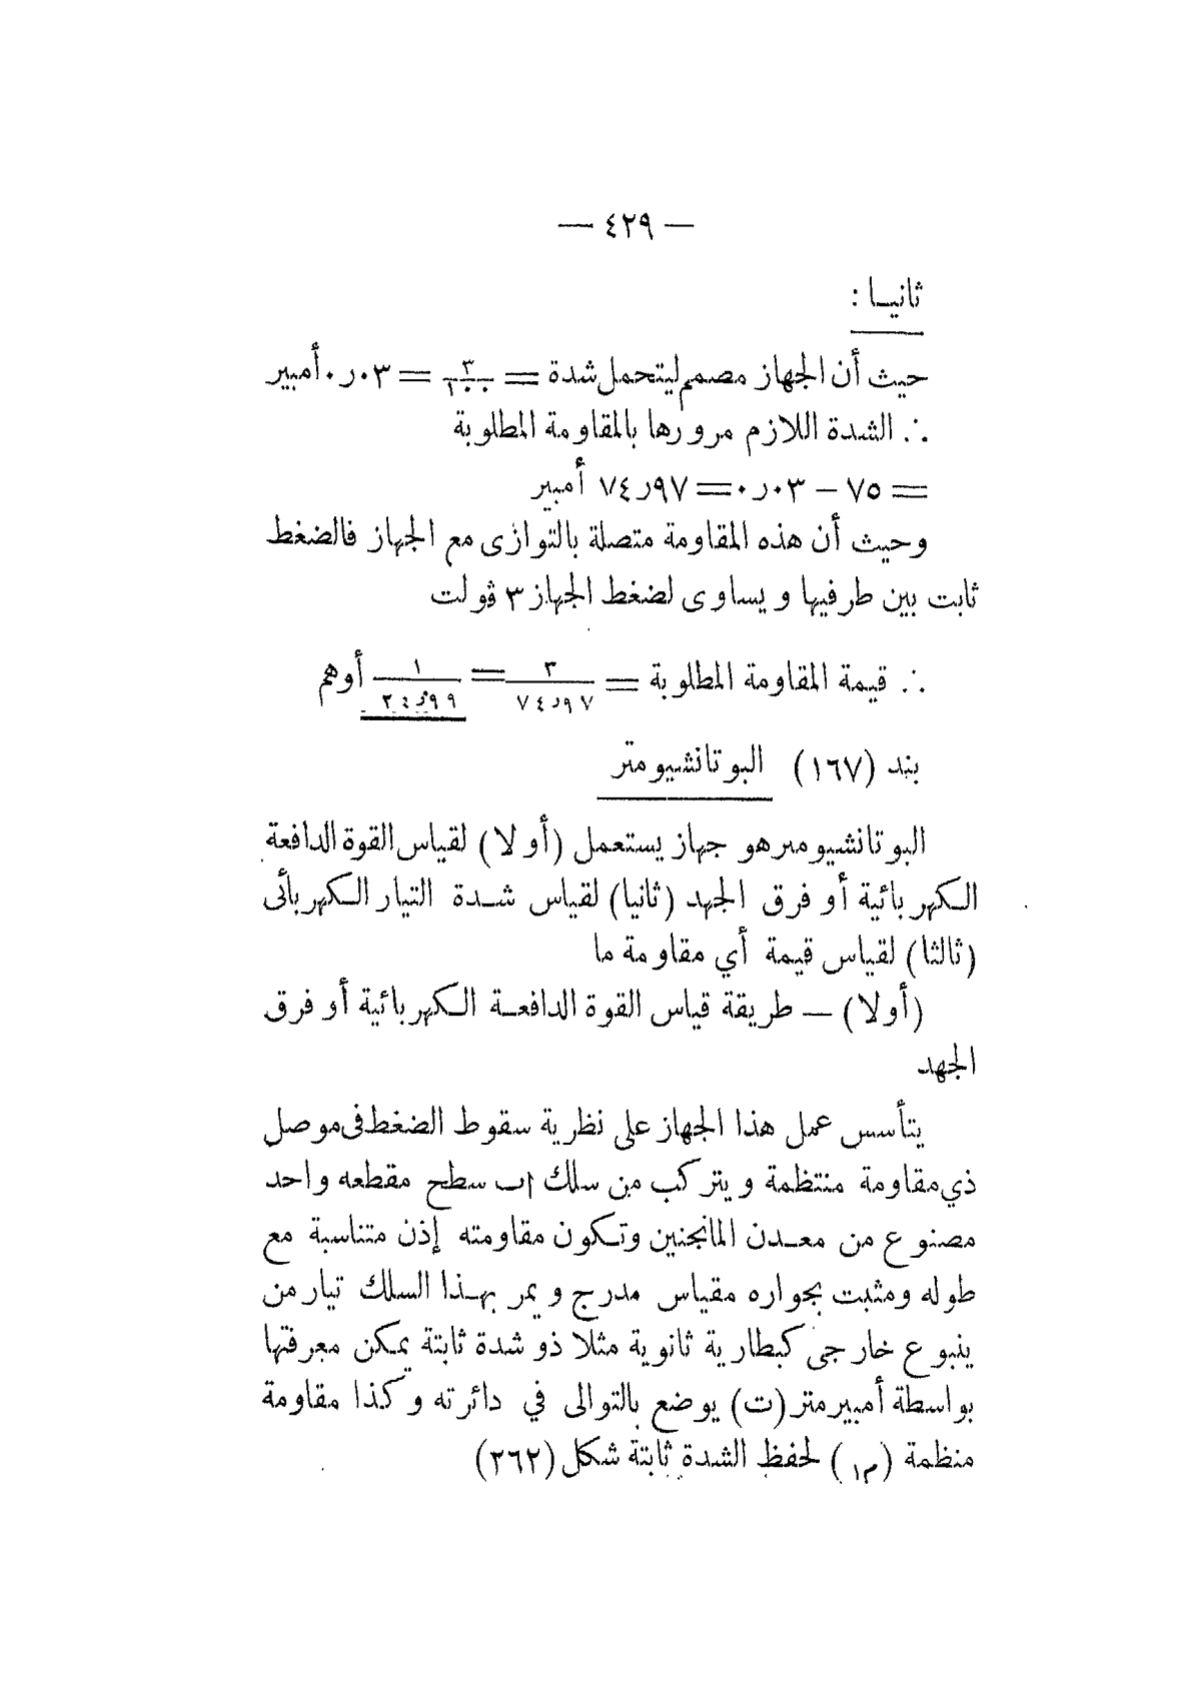 — ٤٢٩ —
ثانيـا :
حيث أن الجهاز مصمم ليتحمل شدة = ٣/١٠٠ = ٠٣ر٠ أمبير
∴ الشدة اللازم مرورها بالمقاومة المطلوبة
= ٧٥ – ٠٣ر٠ = ٩٧ر٧٤ أمبير
وحيث أن هذه المقاومة متصلة بالتوازى مع الجهاز فالضغط
ثابت بين طرفيها ويساوى لضغط الجهاز ٣ ڤولت
∴ قيمة المقاومة المطلوبة = ٣/٩٧ر٧٤ = ١/٩٩ر٢٤ أوهم
بند (١٦٧) البوتانشيومتر
البوتانشيومتر هو جهاز يستعمل (أولا) لقياس القوة الدافعة
الـكهربائية أو فرق الجهد (ثانيا) لقياس شـدة التيار الـكهربائى
(ثالثا) لقياس قيمة أي مقاومة ما
(أولا) — طريقة قياس القوة الدافعـة الـكهربائية أو فرق
الجهد
يتأسس عمل هذا الجهاز على نظرية سقوط الضغط فى موصل
ذي مقاومة منتظمة ويتركب من سلك اب سطح مقطعه واحد
مصنوع من معـدن المانجنين وتـكون مقاومته إذن متناسبة مع
طوله ومثبت بجواره مقياس مدرج ويمر بهـذا السلك تيار من
ينبوع خارجى كبطارية ثانوية مثلا ذو شدة ثابتة يمكن معرفتها
بواسطة أمبيرمتر (ت) يوضع بالتوالى في دائرته وكذا مقاومة
منظمة (م١) لحفظ الشدة ثابتة شكل (٢٦٢)